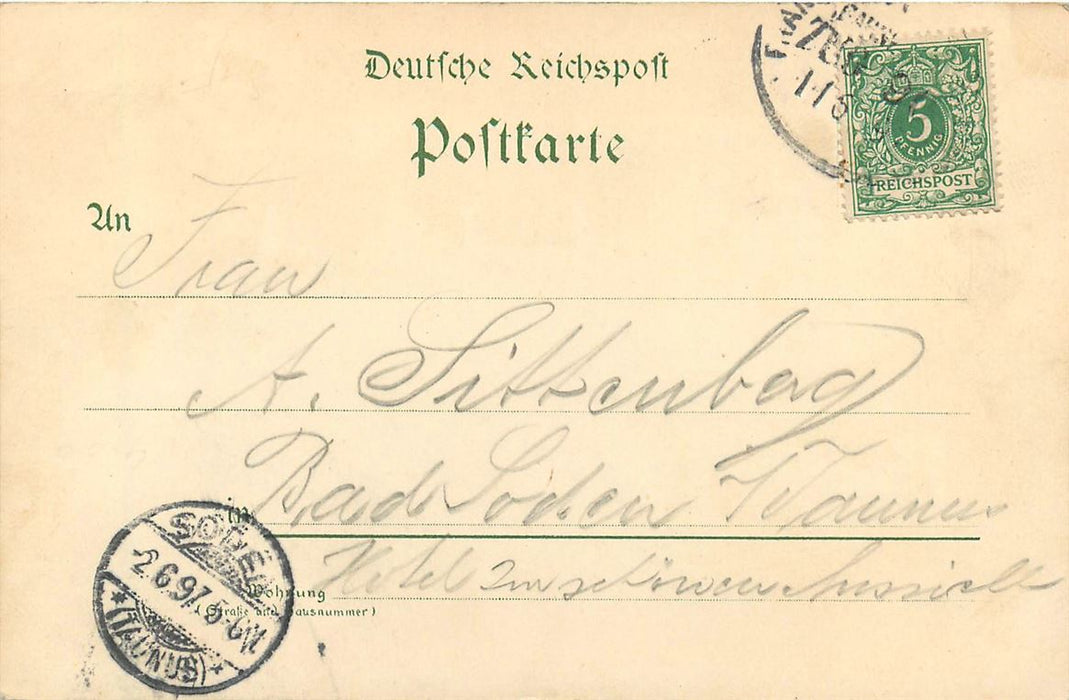 Deutsche Reichspost
Postkarte
5
PFENNIG
REICHSPOST
1/6
An
Frau
A. Sittenbag
Bad Soden Taunus
in
Hotel zur schönen Aussicht
Wohnung
(Straße und Hausnummer)
SODEN
2.6.97 5-6N.
*(TAUNUS)*